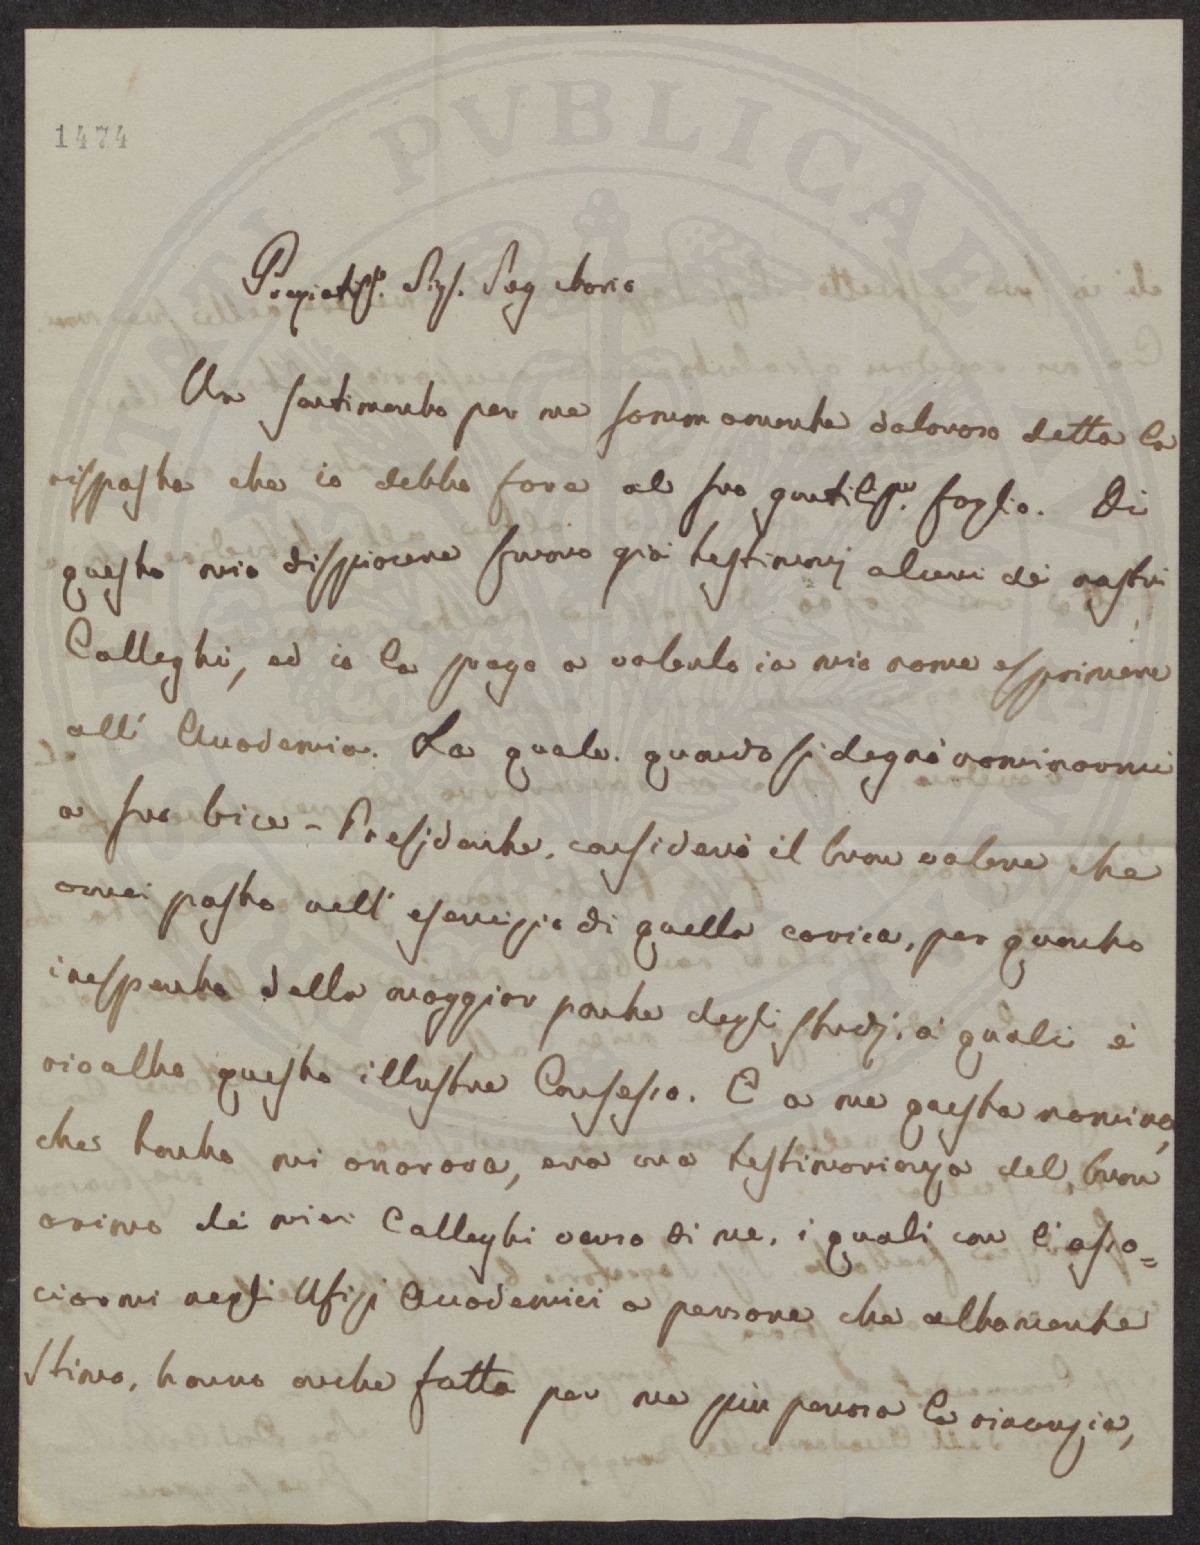 1474
PUBLICAE
Pregiatiss.º Sig.r Segretario
Un sentimento per me sommamente doloroso detta la
risposta che io debbo fare al suo gentiliss.º foglio. Di
questo mio dispiacere furono già testimonj alcuni dei nostri
Colleghi, ed io la prego a volerlo in mio nome esprimere
all'Accademia. La quale, quando si degnò nominarmi
a suo Vice-Presidente, considerò il buon volere che
avrei posto nell'esercizio di quella carica, per quanto
inesperto della maggior parte degli studj, a' quali è
rivolto questo illustre Consesso. E a me questa nomina,
che tanto mi onorava, era una testimonianza del buon
animo dei miei Colleghi verso di me, i quali con l'asso=
ciarmi negli Ufizj Accademici a persone che altamente
stimo, hanno anche fatta per me più penosa la rinunzia,